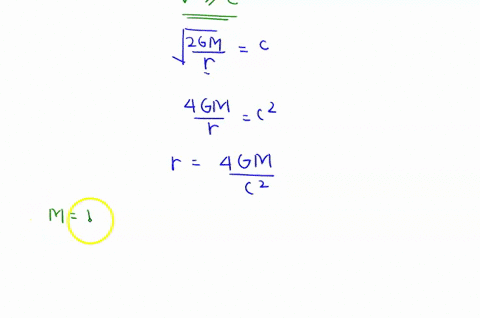 √(2GM/r) = c
4GM/r = c²
r = 4GM/c²
M = 1